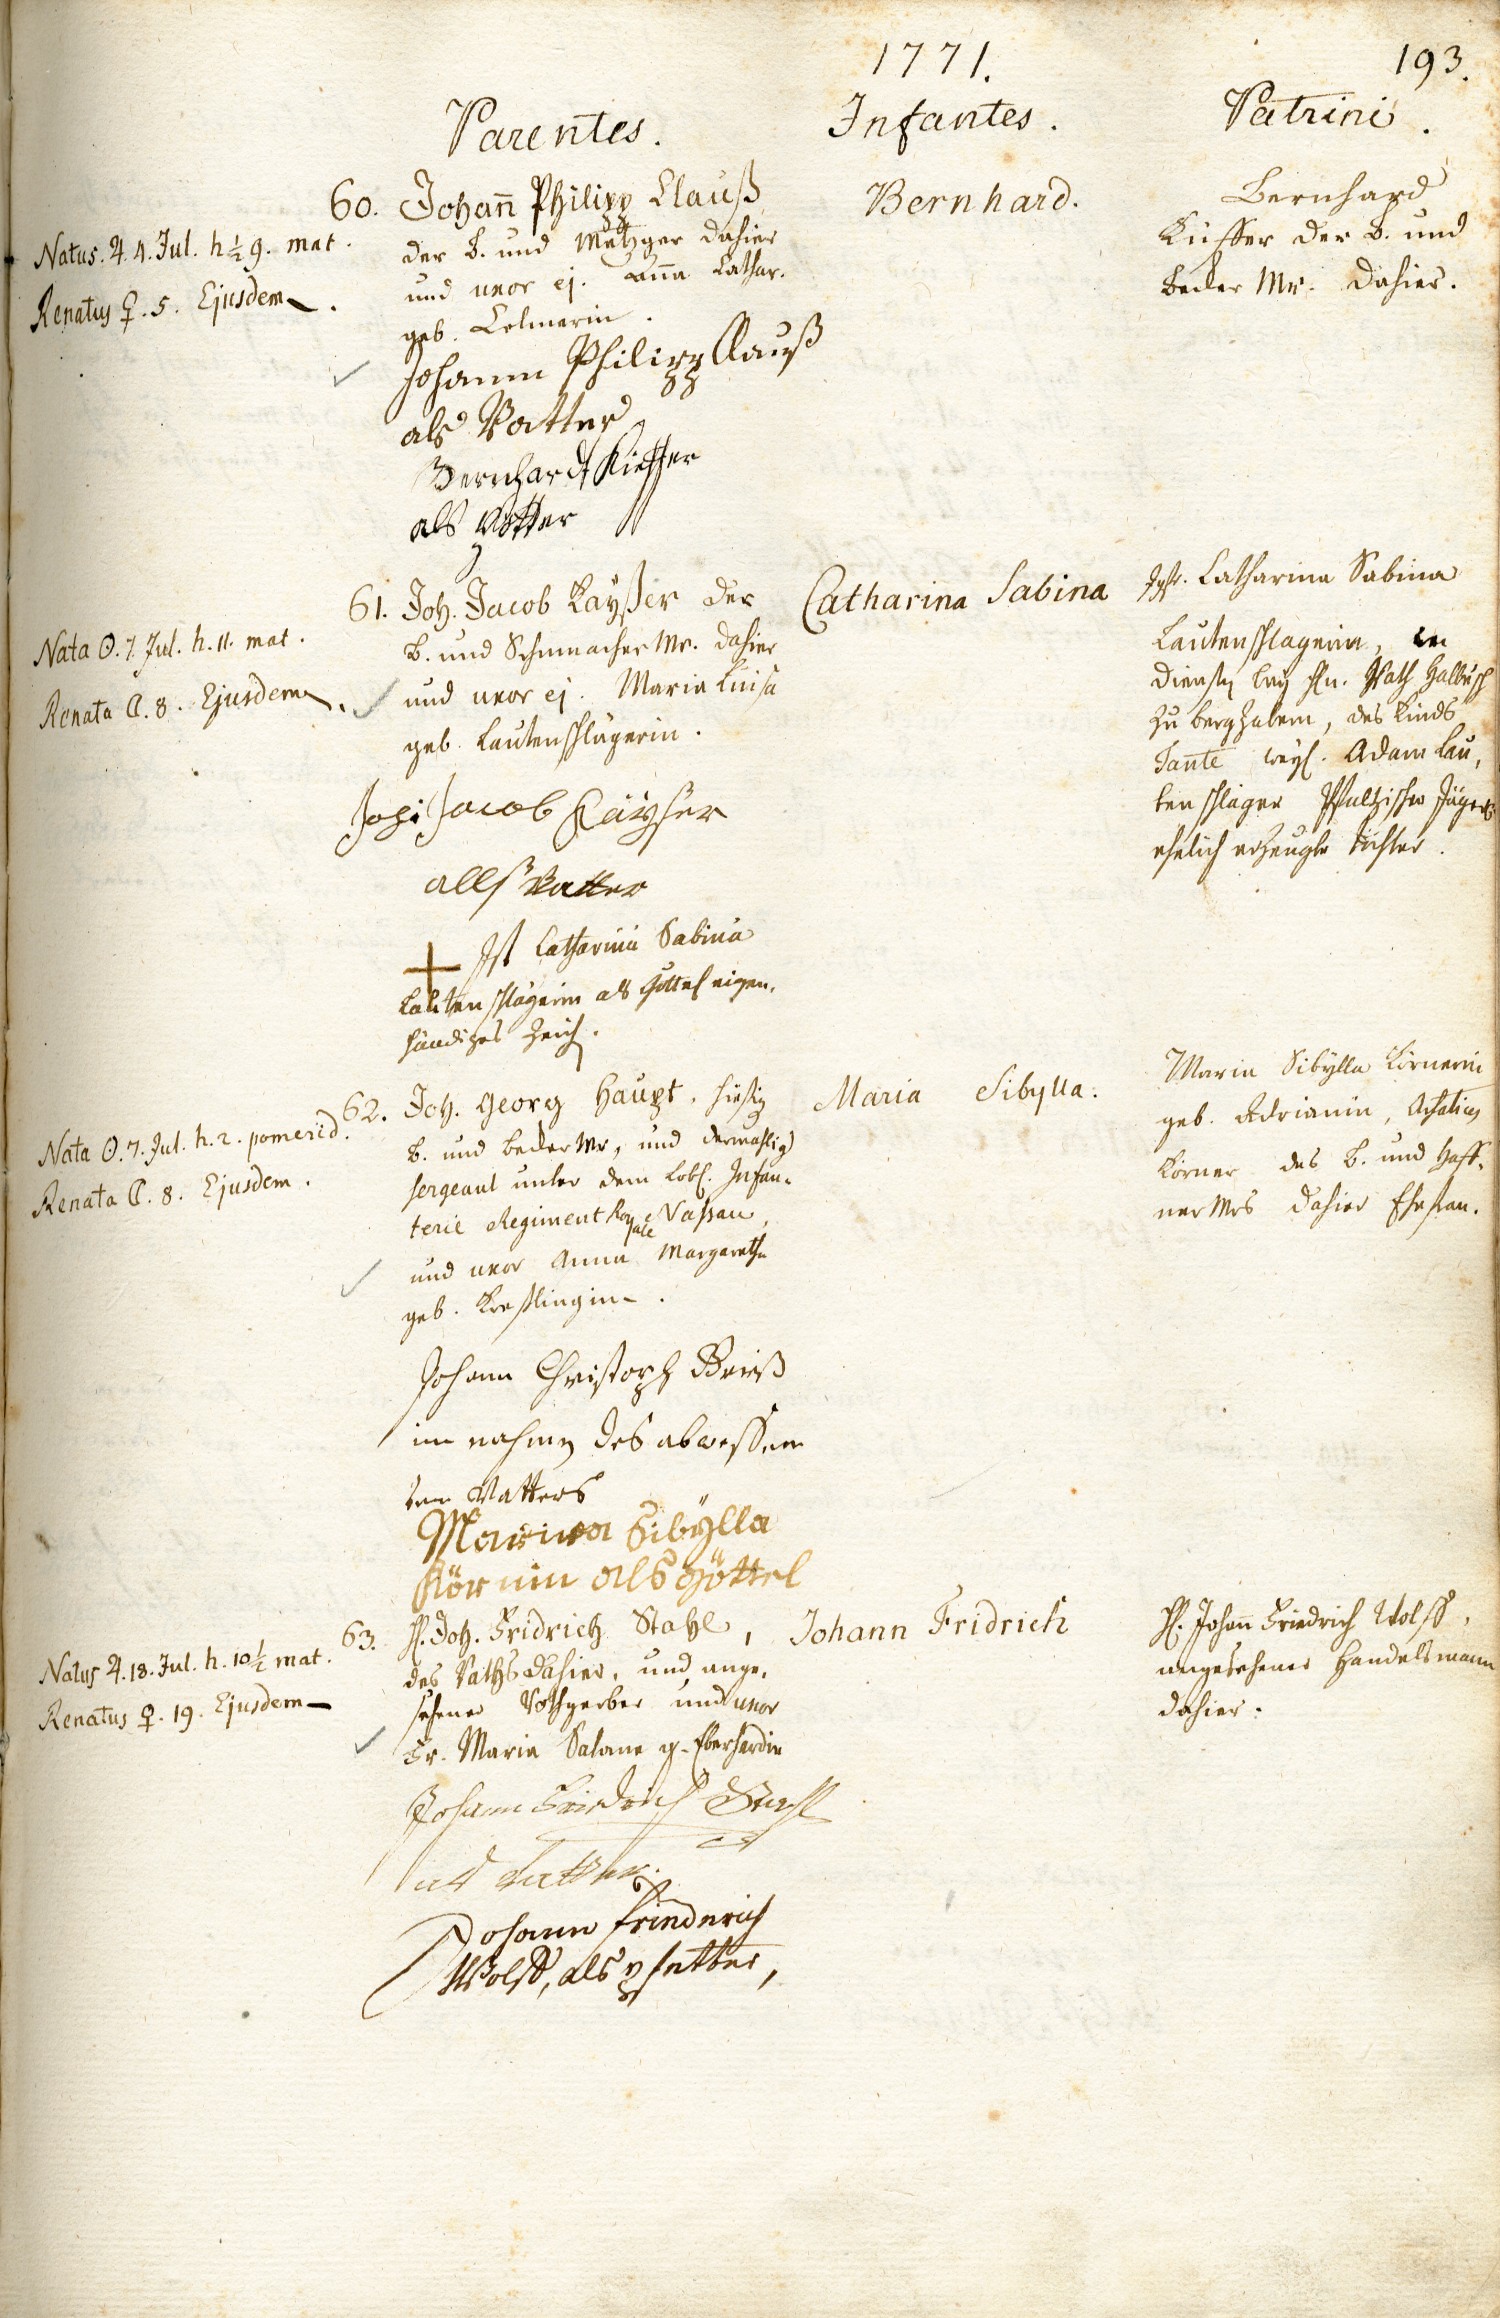 1771.
193.
Parentes.
Infantes.
Patrini.
Natus. ♃. 4. Jul. h ½ 9. mat.
Renatus ♀. 5. Ejusdem.
60. Johan̄ Philipp Clauß
der B. und Metzger dahier
und uxor ej. Anna Cathar.
geb.
Johann Philipp Clauß
als Vatter
Bernhardt Kieffer
als Götter
Bernhard.
Bernhard
Kuffer der B. und
Becker Mr. dahier.
Nata ☉. 7. Jul. h. 11. mat.
Renata ☾. 8. Ejusdem.
61. Joh. Jacob Kayßer der
B. und Schumacher Mr. dahier
und uxor ej. Maria Luisa
geb. Lautenschlägerin.
Jacob Käyser
alls Vatter
Catharina Sabina
Lautenschlägerin als Göttel eigen-
händiges Zeich.
Catharina Sabina
Jgfr. Catharina Sabina
Lautenschlagerin, in
Diensten bey Hn. Rath
zu Bergzabern, des Kinds
Tante weyl. Adam Lau-
tenschlager Pfaltzischer Jägers
ehelich erzeugte Tochter.
Nata ☉. 7. Jul. h. 2. pomerid.
Renata ☾. 8. Ejusdem.
62. Joh. Georg Haupt, hießig
B. und Becker Mr, und dermahlig
Sergeant unter dem Lobl. Infan-
terie Regiment Royale Nassau,
und uxor Anna Margareth
geb.
Johann Christoph
im nahmen des abwessen
den Vatters
Maria Sibÿlla
Körnin als Göttel
Maria Sibylla.
Maria Sibylla Körnerin
geb. Adrianin, Achatius
Körner des B. und Haff-
ner Mrs dahier Ehefrau.
Natus ♃. 18. Jul. h. 10½ mat.
Renatus ♀. 19. Ejusdem
63. H. Joh. Fridrich Stahl,
des Raths dahier, und ange-
sehener Rothgerber und uxor
Fr. Maria Salome g. Eberhardin
Johann Friedrich Stahl
als Vatter.
Johann Friederich
Wolff, als pfetter,
Johann Fridrich
H. Johan̄ Friedrich Wolff,
angesehener Handelsmann
dahier.